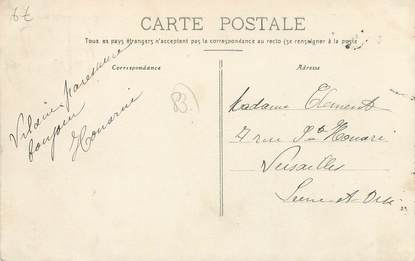 6€
CARTE POSTALE
Tous les pays étrangers n'acceptent pas la correspondance au recto (se renseigner à la poste
Correspondance
Adresse
Vilaine paresseuse
bonjour
Honorine
83
Madame Clement
7 rue Pte
Versailles
Seine-et-Oise